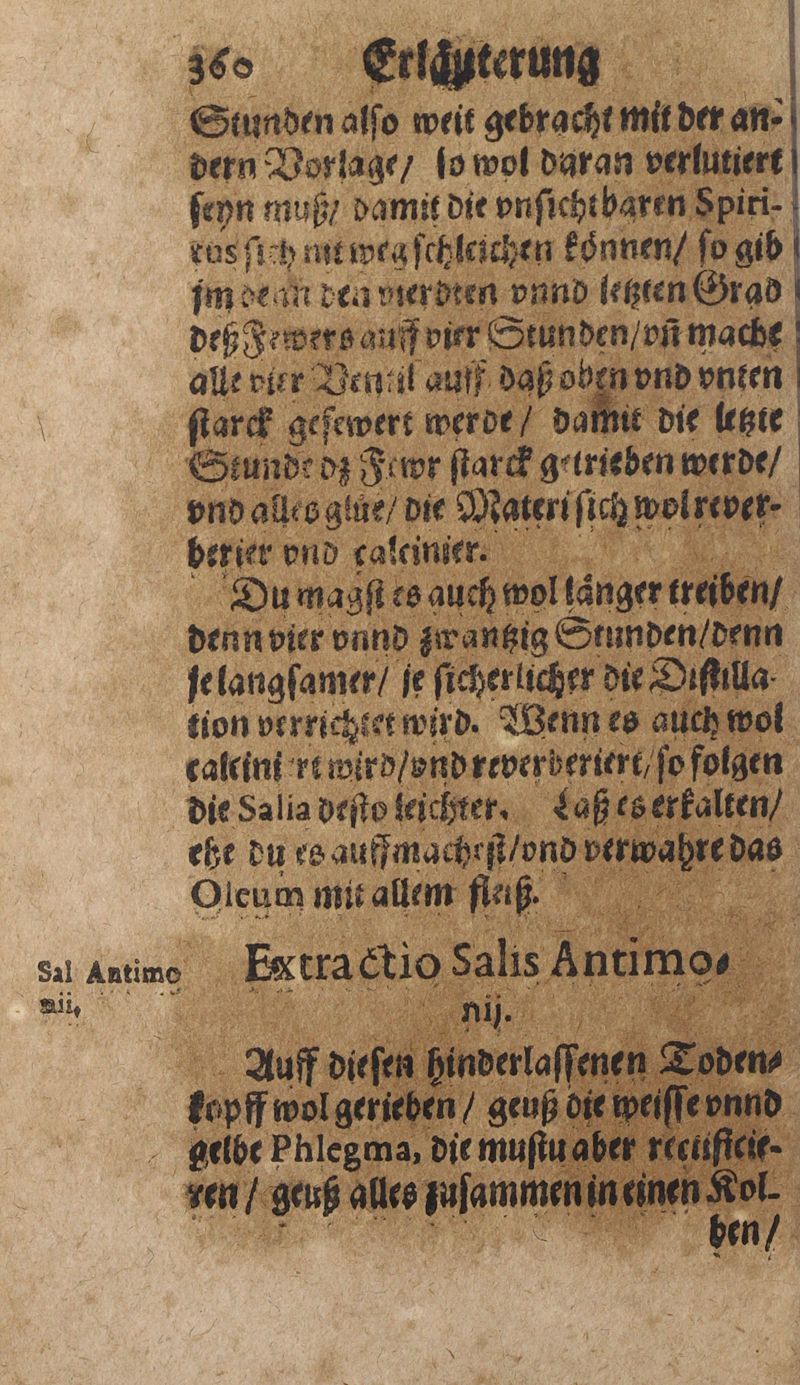 360 Erläuterung
Stunden alſo weit gebracht mit der an-
dern Vorlage/ ſo wol daran verlutiert
ſeyn muß/ damit die vnſichtbaren Spiri-
tus ſich nit weg ſchleichen können/ ſo gib
jm denn den vierdten vnnd letzten Grad
deß Fewers auff vier Stunden/ vñ mache
alle vier Ventil auff daß oben vnd vnten
ſtarck gefewert werde/ damit die letzte
Stunde dz Fewr ſtarck getrieben werde/
vnd alles glüe/ die Materi ſich wol rever-
berier vnd calcinier.
Du magſt es auch wol länger treiben/
denn vier vnnd zwantzig Stunden/ denn
je langſamer/ je ſicherlicher die Diſtilla-
tion verrichtet wird. Wenn es auch wol
calciniert wird/ vnd reverberiert/ ſo folgen
die Salia deſto leichter. Laß es erkalten/
ehe du es auffmacheſt/ vnd verwahre das
Oleum mit allem fleiß.
Sal Antimo Extractio Salis Antimo-
nii. nij.
Auff dieſen hinderlaſſenen Toden-
kopff wol gerieben/ geuß die weiſſe vnnd
gelbe Phlegma, die muſtu aber rectificie-
ren/ geuß alles zuſammen in einen Kol-
ben/